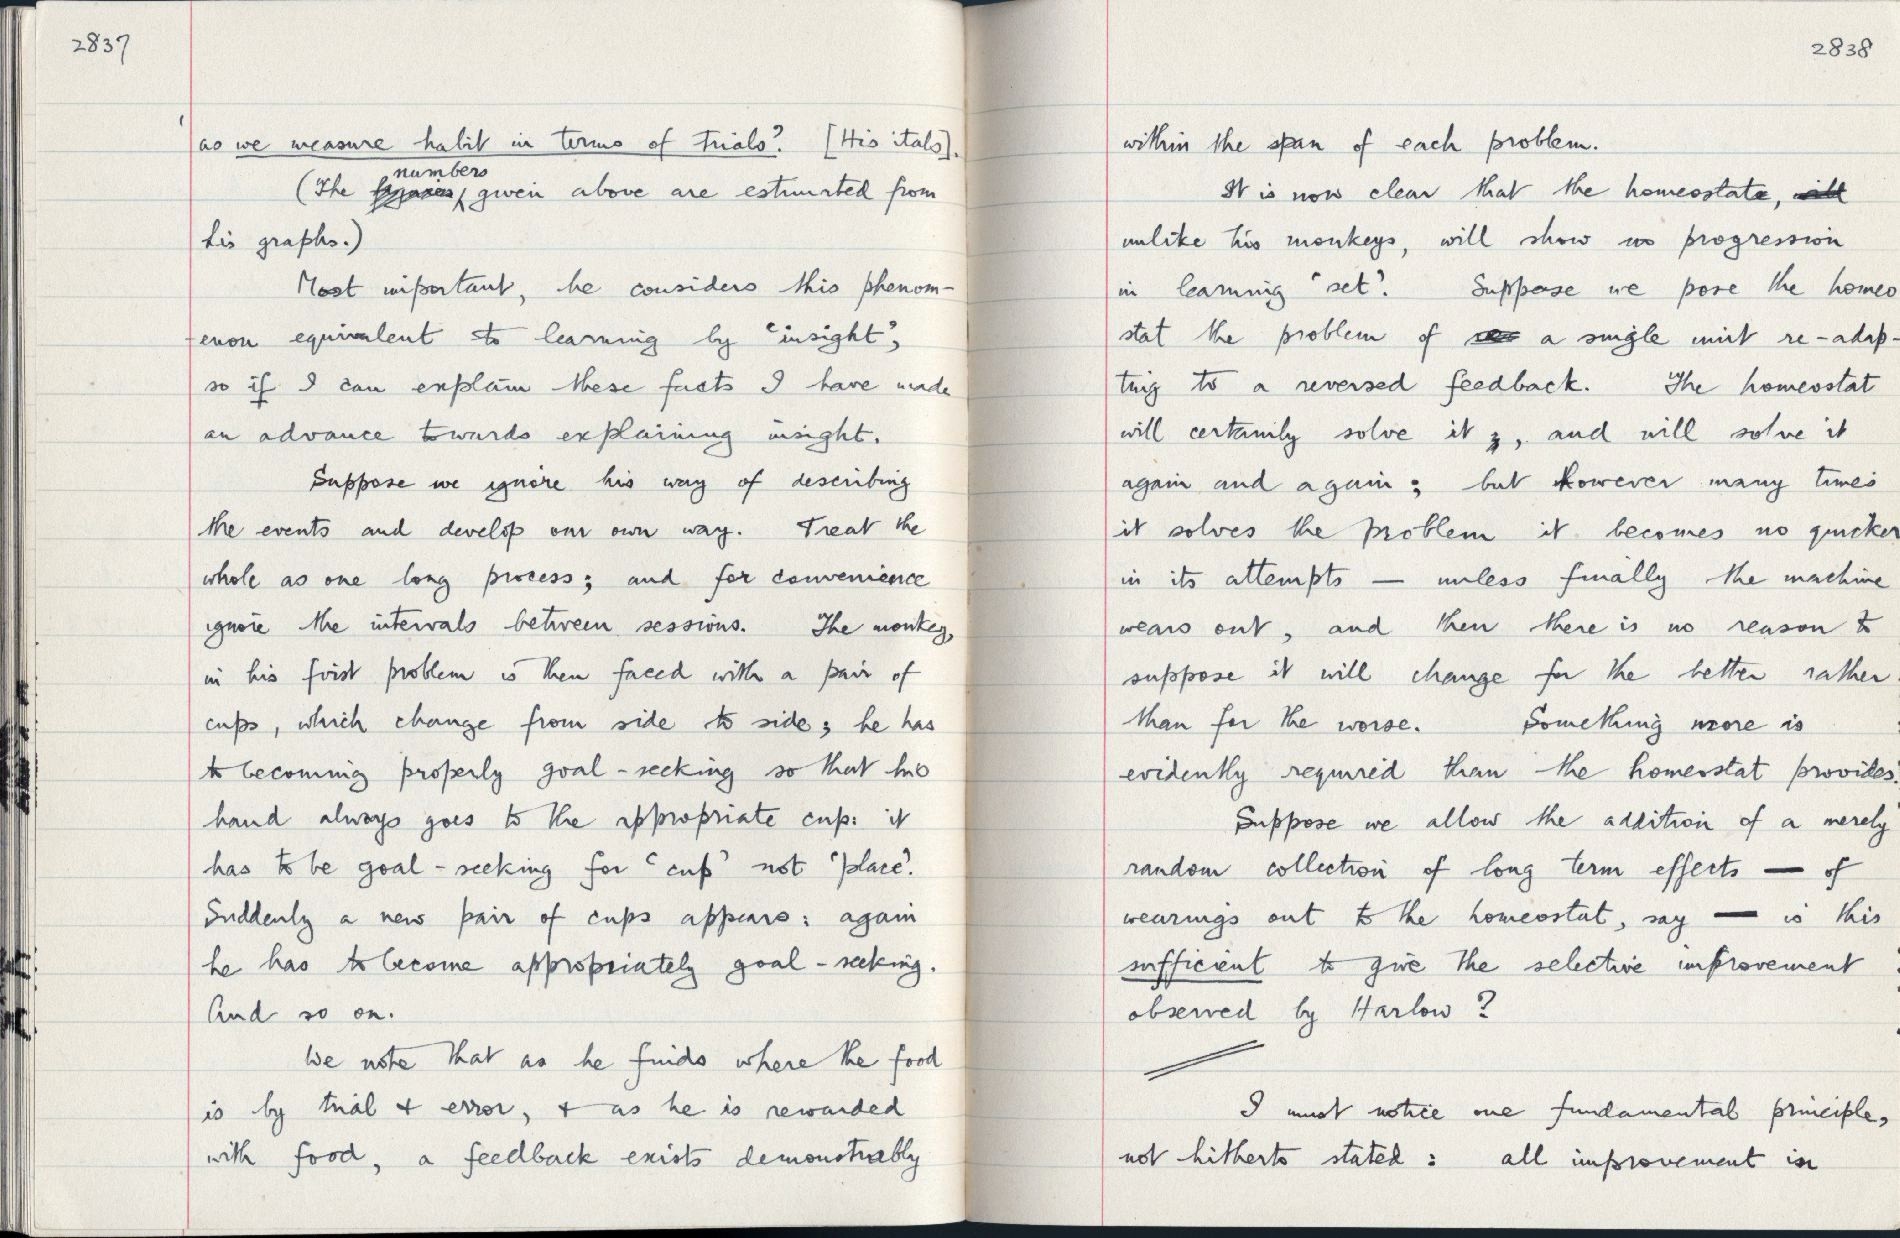 2837
as we measure habit in terms of trials? [His itals].
numbers
(The given above are estimated from
his graphs.)
Most important, he considers this phenom-
-enon equivalent to learning by "insight";
so if I can explain these facts I have made
an advance towards explaining insight.
Suppose we ignore his way of describing
the events and develop our own way. Treat the
whole as one long process; and for convenience
ignore the intervals between sessions. The monkey,
in his first problem is then faced with a pair of
cups, which change from side to side; he has
to becoming properly goal-seeking so that his
hand always goes to the appropriate cup: it
has to be goal-seeking for 'cup' not 'place'.
Suddenly a new pair of cups appears: again
he has to become appropriately goal-seeking.
And so on.
We note that as he finds where the food
is by trial & error, & as he is rewarded
with food, a feedback exists demonstrably
2838
within the span of each problem.
It is now clear that the homeostate, will
unlike his monkeys, will show no progression
in learning 'set'. Suppose we pose the homeo
stat the problem of a single unit re-adap-
ting to a reversed feedback. The homeostat
will certainly solve it, and will solve it
again and again; but however many times
it solves the problem it becomes no quicker
in its attempts — unless finally the machine
wears out, and then there is no reason to
suppose it will change for the better rather
than for the worse. Something more is
evidently required than the homeostat provides.
Suppose we allow the addition of a merely
random collection of long term effects — of
wearings out to the homeostat, say — is this
sufficient to give the selective improvement
observed by Harlow?
I must notice one fundamental principle,
not hitherto stated: all improvement in